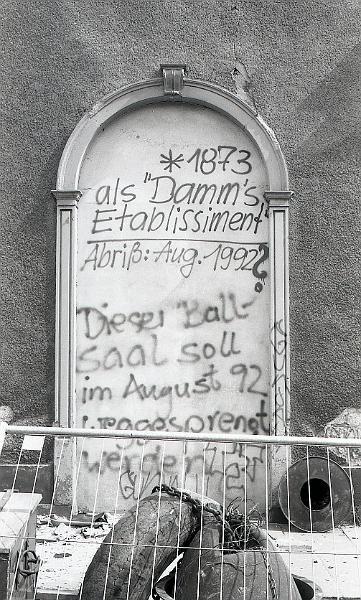 *1873
als "Damm's
Etablissiment"
Abriß: Aug. 1992?
Dieser "Ball-
saal soll
im August 92
weggesprengt
werden